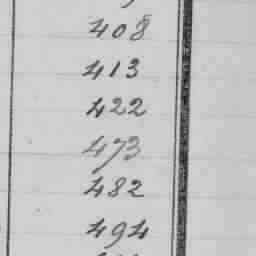 408
413
422
473
482
494